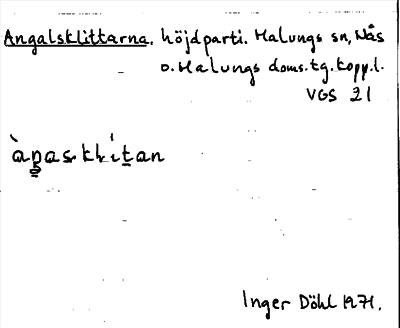 Angalsklittarna. höjdparti. Malungs sn, Nås
o. Malungs doms. tg. kopp.l.
VGS 21
Inger Döhl 1971.